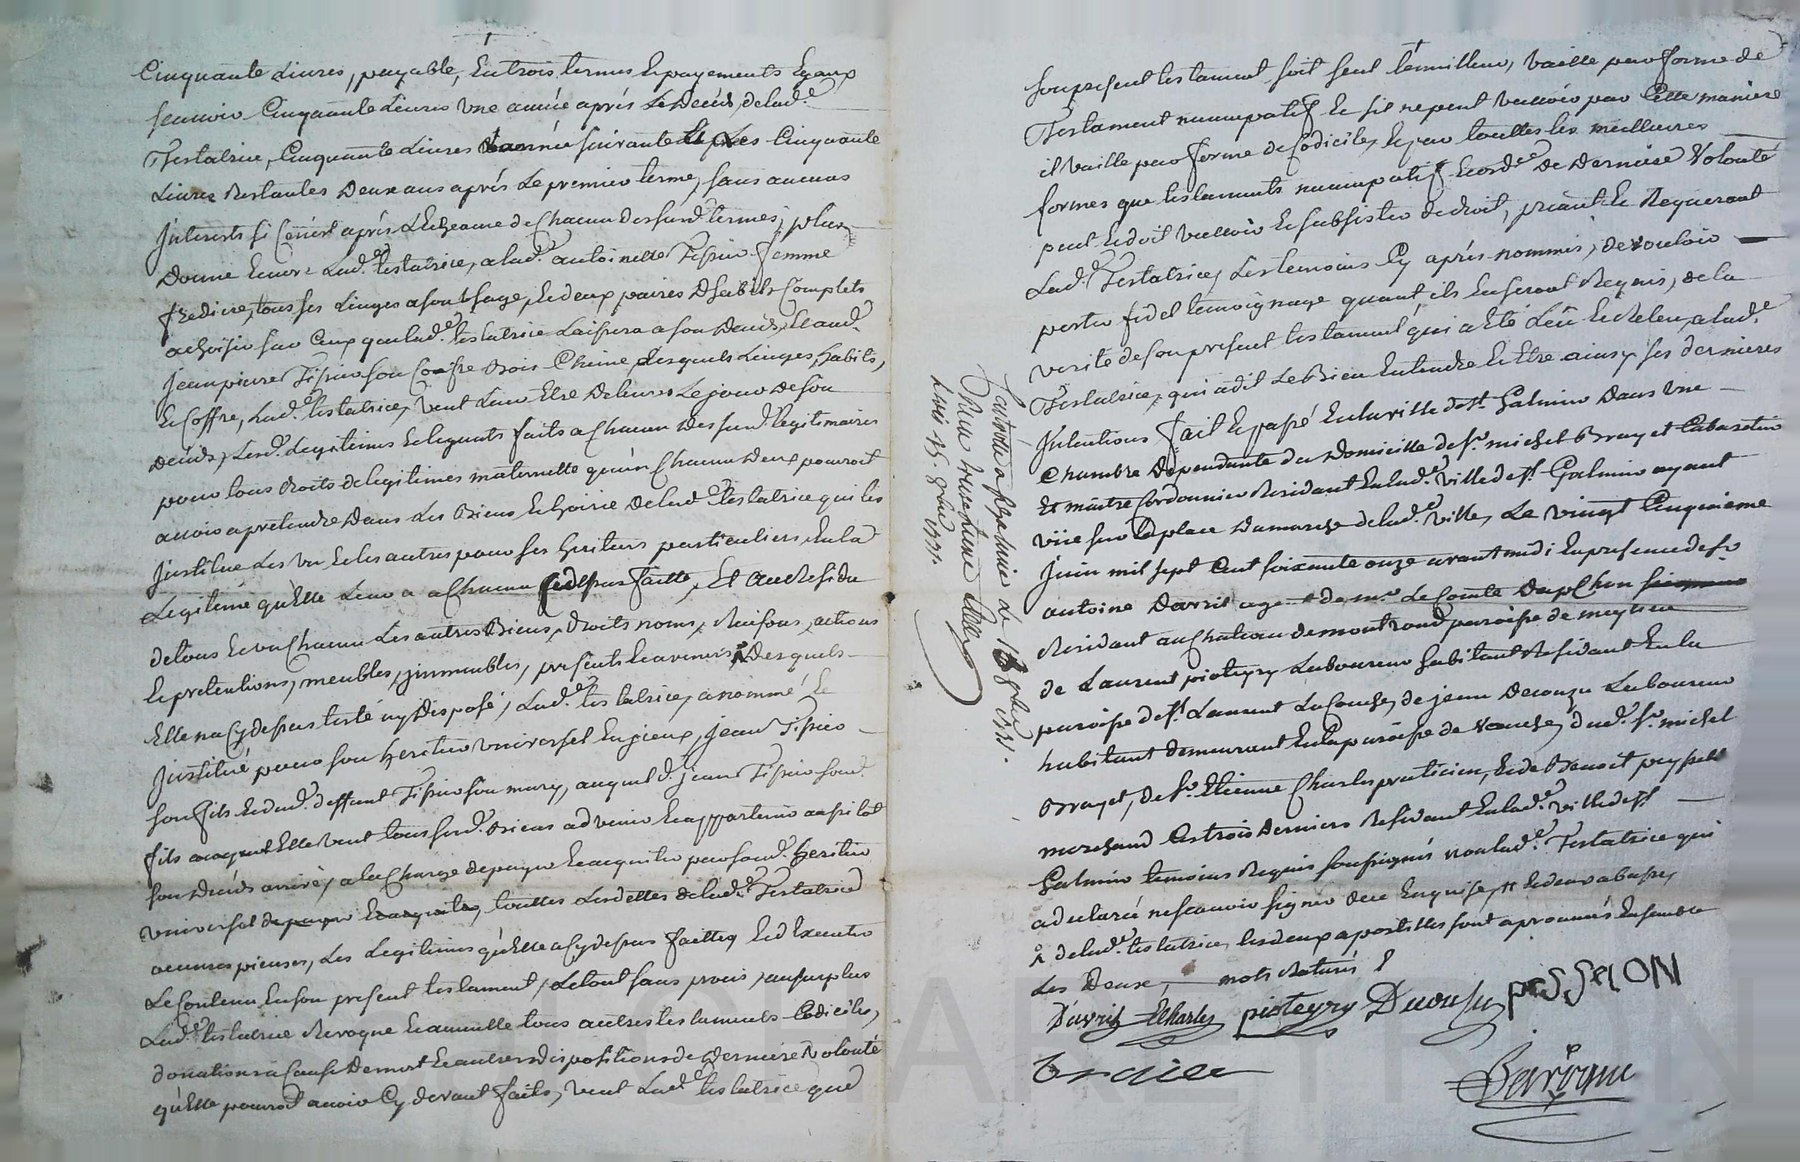 Cinquante Livres, payable, En trois termes Et payements Egaux
scavoir Cinquante Livres une année aprés Le Décéds, de lad.e
Testatrice, Cinquante Livres L'année suivante Et Les Cinquante
Livres Restantes Deux ans aprés Le premier terme, sans aucuns
Interests si Ce n'est aprés L'Echeance de Chacun des susd. termes, plus
Donne Encore Lad.e testatrice, a lad.e antoinette Tissier femme
tous ses Linges a son Usage, Et deux paires D'habits Complets
a choisir sur Ceux que lad.e testatrice Laissera a son Décéds, Et aud.
Jean pierre Tissier son Coffre Bois Chêne, Lesquels Linges, habits,
Et Coffre, Lad.e testatrice, Veut Leur Etre Delivrés Le jour de son
Décéds, Lesd. Legitimes Et legats faits a Chacun Des susd. Legitimaires
pour tous Droits de legitimes maternelle qu'un Chacun D'eux pourroit
avoir a pretendre Dans Les Biens Et hoirie De lad.e testatrice qui les
Institue Les Un Et les autres pour ses heritiers particuliers, En la
Legitime qu'Elle Leur a a Chacun Cy dessus faitte, Et au Residu
de tous Et un Chacun Les autres Biens, Droits noms, Raisons, actions
Et pretentions, meubles, immeubles, presents Et avenirs, Desquels
Elle n'a Cy dessus testé ny Disposé, Lad.e testatrice, a nommé Et
Institué pour son heritier universel Jean Tissier
son fils Et dud. deffunt Tissier son mary, auquel d. Jean Tissier son d.
fils Elle Veut tous sesd. Biens advenir Et appartenir aussitot
son Décéds arrivé, a la Charge de payer Et acquitter par sond. heritier
universel de payer Et acquitter, touttes Les dettes de lad.e Testatrice
œuvres pieuses, Les Legitimes qu'Elle a Cy dessus faittes, Et d'Executer
Le Contenu En son present testament, Le tout sans procés, au surplus
Lad.e testatrice Revoque Et annulle tous autres testaments Codiciles,
donations a Cause De mort Et autres dispositions de Derniere Volonté
qu'Elle pourroit avoir Cy devant faits, Veut Lad.e testatrice que
son present testament soit seul Et meilleur, Vaille par forme de
Testament nuncupatif Et s'il ne peut Valloir par Cette maniere
il Vaille par forme de Codicile, Et par touttes les meilleures
formes que testaments nuncupatif De Derniere Volonté
peut Et doit Valloir Et subsister de droit, priant Et Requerant
Lad.e Testatrice, Les temoins Cy aprés nommés, de vouloir
porter fidel temoignage quant ils En seront Requis, de la
verité de son present testament qui a Eté Leu Et Releu, a lad.e
Testatrice, qui a dit Le Bien Entendre Et Etre ainsy ses dernieres
Intentions fait Et passé En la ville de St. Galmier Dans une
Chambre Dependante du Domicille de Sr. michel Brayet Cabaretier
Et maître Cordonnier Residant En lad.e ville de St. Galmier ayant
vüe sur La place Du marché de lad.e ville, Le vingt Cinquieme
Juin mil sept Cent soixante onze avant midi En presence de Sr.
antoine Davril agent de mr. Le Comte
Residant au Chateau de montrond paroisse de meylieu
de Laurent pioteyry Laboureur habitant Residant En la
paroisse de St. Laurent La Conche, de jean Decouzu Laboureur
habitant demeurant En la paroisse de Veauche, Dud. Sr. michel
Brayet, de Sr. Etienne Charles praticien, Et de Benoit peysselon
marchand Les trois Derniers Residant En lad.e ville de St.
Galmier temoins Requis soussignés non lad.e Testatrice qui
a declaré ne scavoir signer De ce Enquise,
de lad.e testatrice, les deux apostilles sont aprouvés Ensemble
Les Douze, mots Raturés
Davril Charles pioteyry Decousu peSSeLON
Braiet
Controlé a St. galmier Le